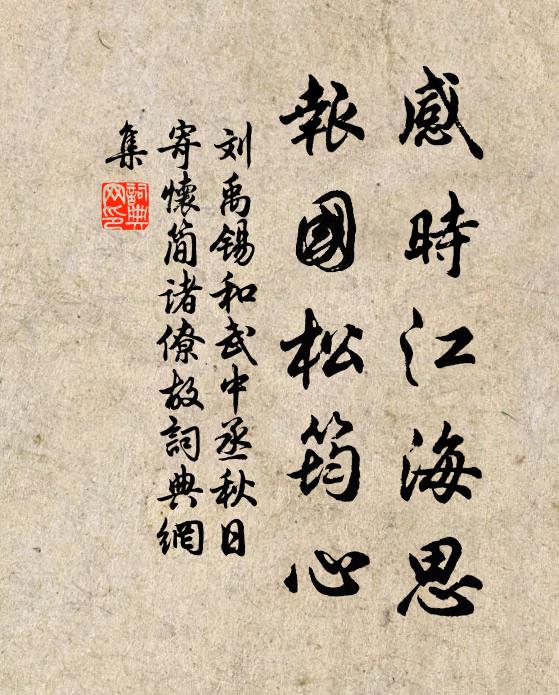 感時江海思
報國松筠心
刘禹锡和武中丞秋日
寄懷简诸僚故詞典網
集
詞典
网印